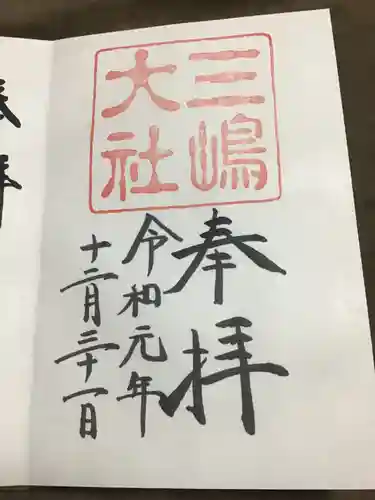 三嶋
大社
奉拝
令和元年
十二月三十一日
奉拝